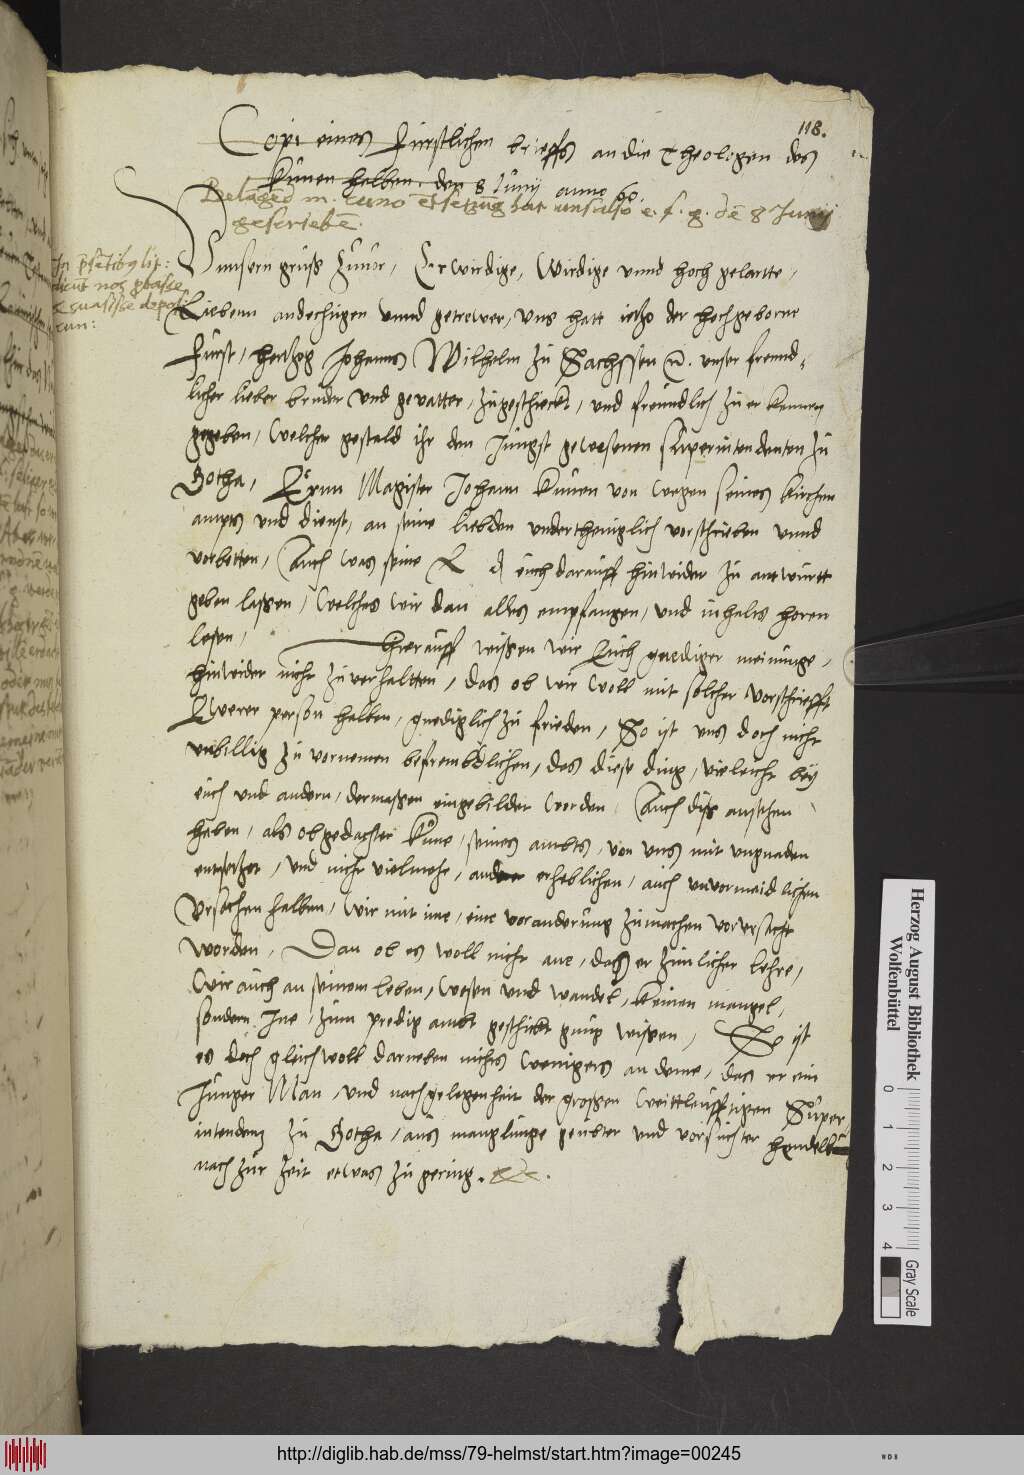 118.
Copi eines Fürstlichen brieffs an die Theologen des
Künen halben. den 8 Junij anno 60
Belāgēd m. Cuno ētsetzūg hat unsulso e. f. g. dē 8 Junij
geschriebē.
Unnsern grus zuuor, Erwirdige, Wirdige unnd hoch gelartte,
Liebenn andechtigen unnd getrewen, Uns hatt itzo der hochgeborne
Fürst, hertzog Johanns Wilhelm zu Sachssen unser freund-
licher lieber bruder und geuatter, zugeschickt, und freundlich zu erkennen
gegeben, welcher gestald ihr den Jungst gewesenen superintendenten zu
Gotha, Ern Magister Johann Künen von wegen seines kirchen
ampts und dienst, an seine liebden undertheniglich vorschrieben unnd
vorbetten, Auch was seine L euch darauff hinwider zu antwurtt
geben lassen, welches wir dan alles empfangen, und inhalts horen
lesen, Hierauff wissen wir Euch gnediger meinunge,
hinwider nicht zuuerhaltten, das ob wir woll mit solcher vorschriefft
Ewerer person halben, gnediglich zu frieden, So ist uns doch nicht
unbillig zu vornemen befrembdlichen, das diese ding, vieleicht bey
euch und andern, dermassen eingebildet worden, Auch diss ansehen
haben, als obgedachter Küne, seines ambts, von uns mit ungnaden
entsetzet, und nicht vielmehr, ander erheblichen, auch unvormeidlichen
Ursachen halben, wir mit ime, eine voranderung zumachen vorursacht
worden, Dan ob es woll nicht ane, das er zimlicher lehre,
Wir auch an seinem leben, wesen und wandel, keinen mangel,
sondern Ine, zum predig ambt geschickt gnug wissen, So ist
es doch gleichwoll darneben nichts wenigers an deme, das er ein
Junger Man, und nach gelegenheit der grossen weittleufftigen Super
intendentz zu Gotha, aus mangelunge geubter und vorsuchter
nach zur zeit etwas zu gering.
Herzog August Bibliothek
Wolfenbüttel
0 1 2 3 4
Gray Scale
http://diglib.hab.de/mss/79-helmst/start.htm?image=00245